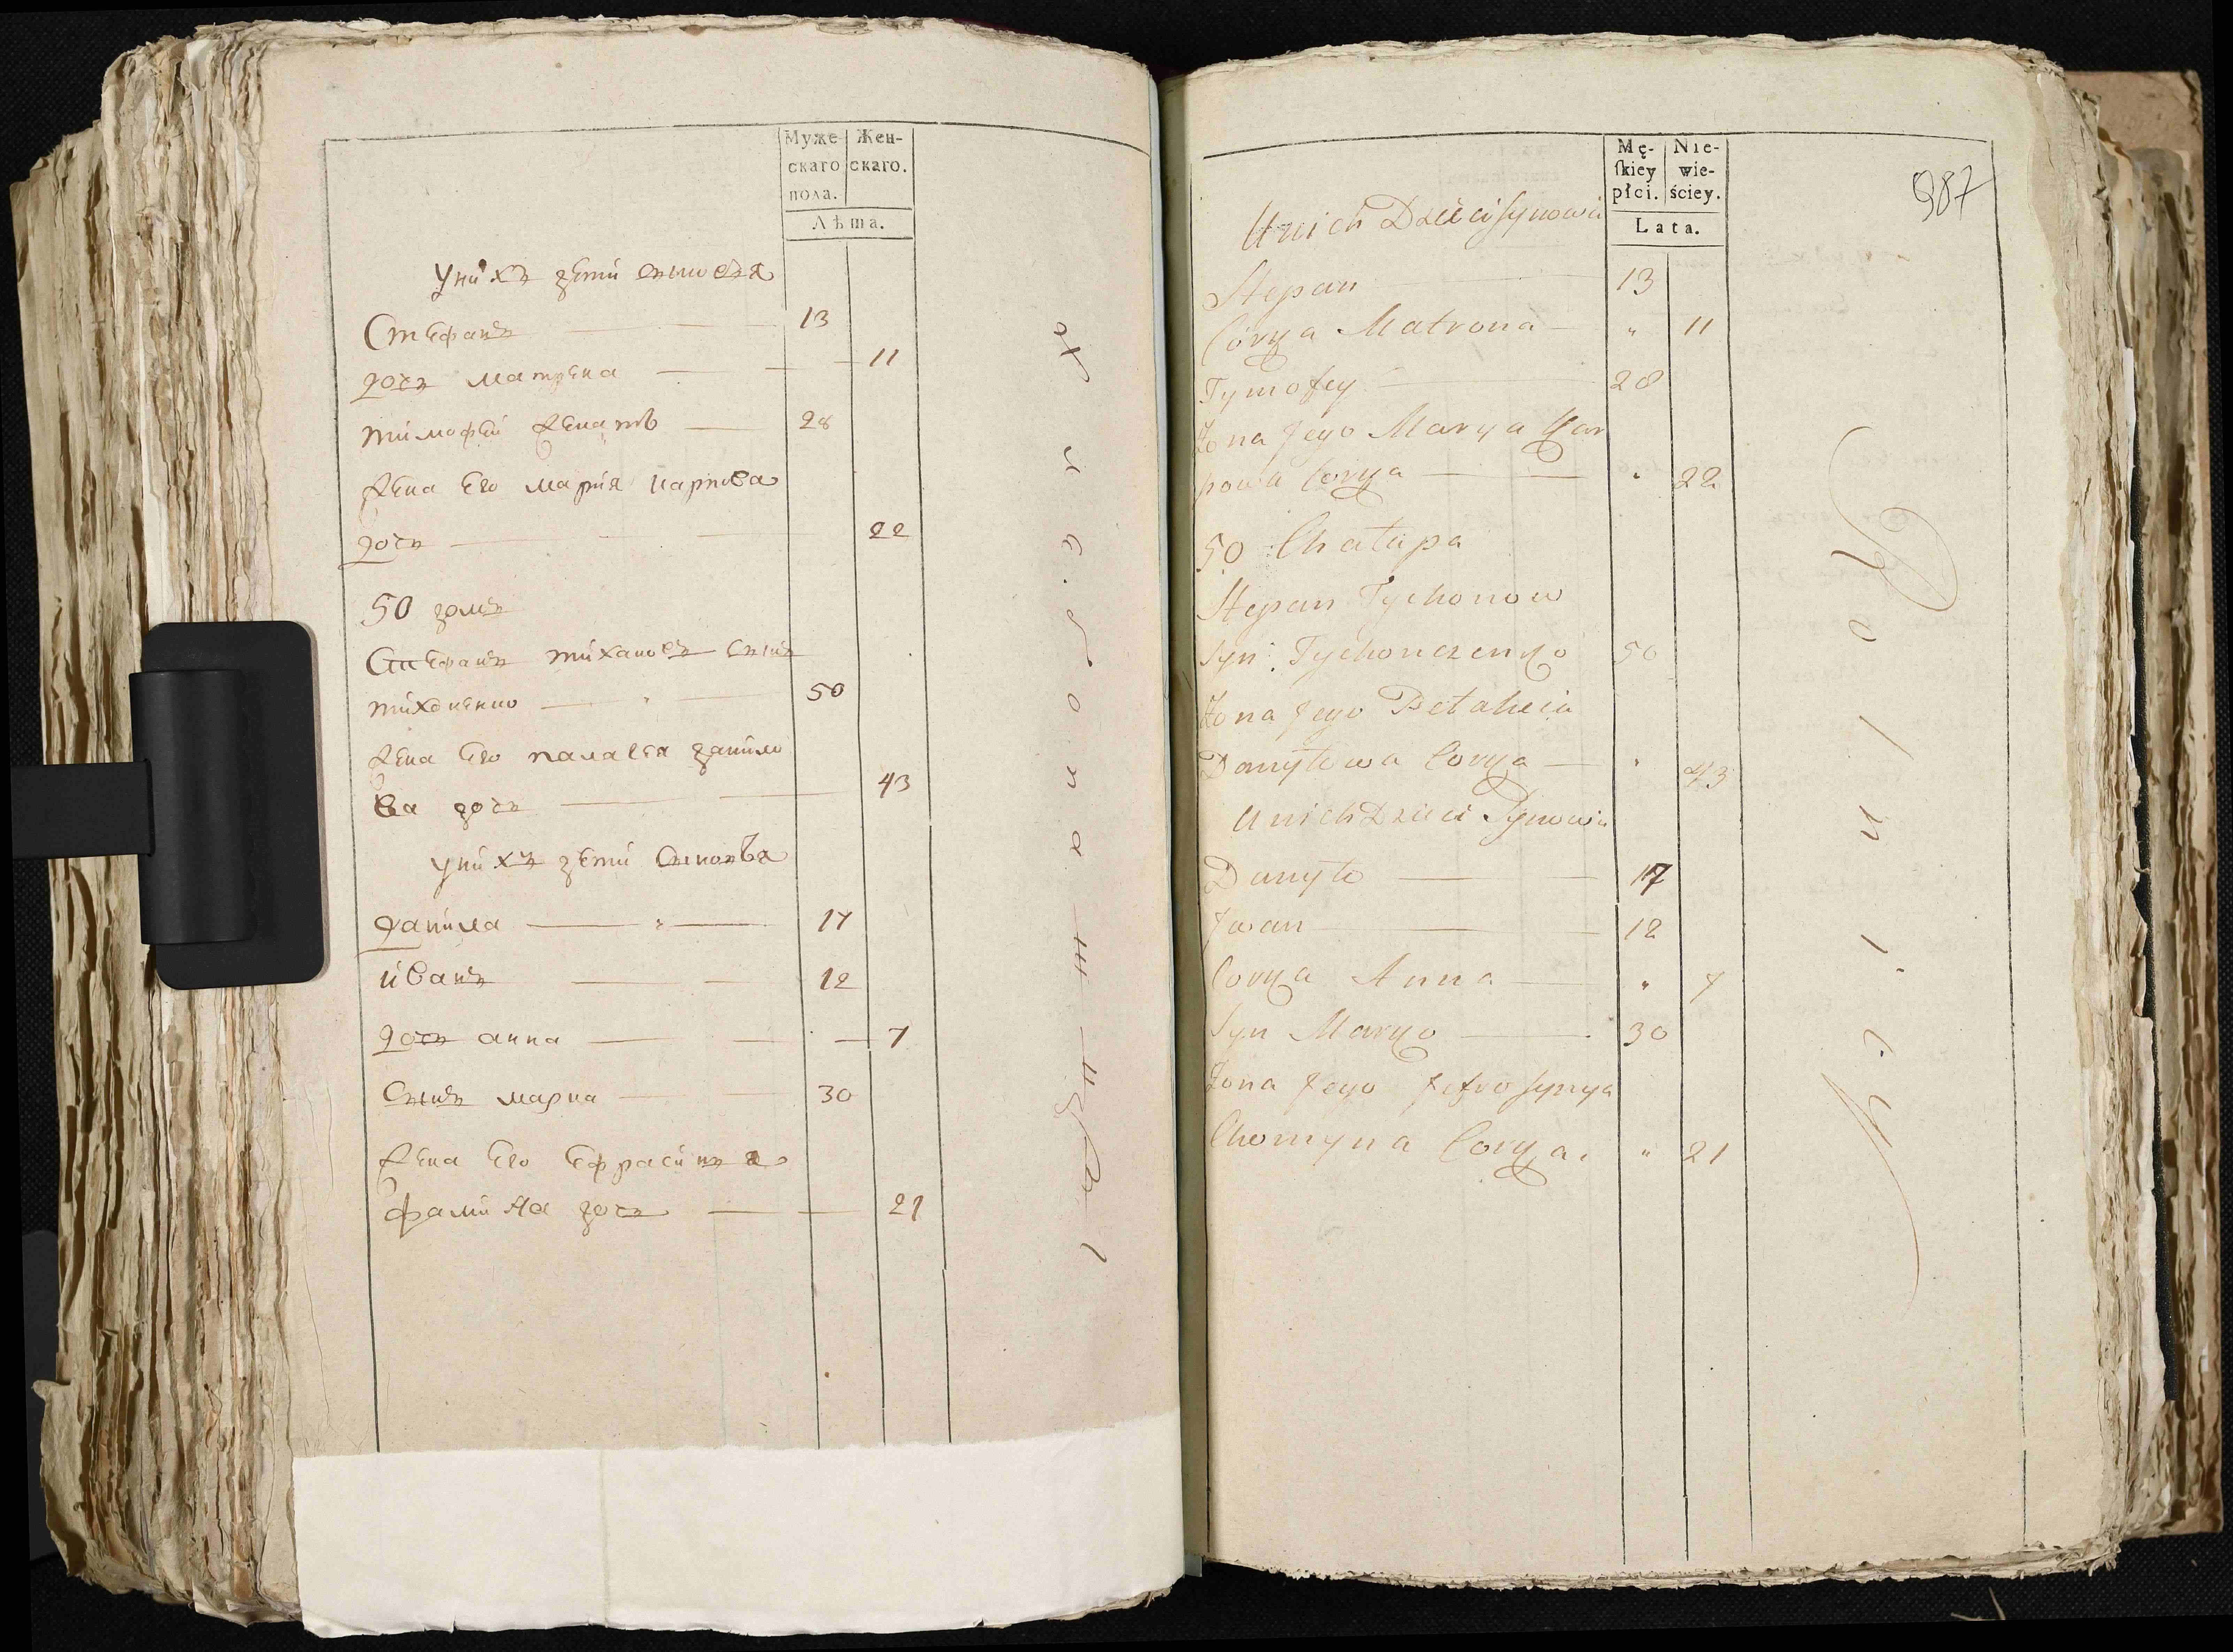 Муже- Жен-
скаго скаго.
пола.
Лѣта.
Унихъ дети сыновья
Стефанъ 13
дочь матрена 11
тимофей женатъ 28
жена его мария карпова
дочь 22
50 домъ
Стефанъ тихановъ сынъ
тихоненко 50
жена его палагея данило
ва дочь 43
Унихъ дети сыновья
данила 17
иванъ 12
дочь анна 7
сынъ марка 30
жена его ефрасинья
фомина дочь 21
Mę- Nie-
skiey wie-
płci. ściey.
Lata.
987
Unich Dzieci synowie
Stepan 13
Corka Matrona " 11
Tymofey 28
Żona Jego Marya Kar
powa Corka " 22
50 Chałupa
Stepan Tychonow
Syn Tychonczenko 50
Żona Jego Pelaheia
Danyłowa Corka " 43
Unich Dzieci Synowie
Danyło 17
Jwan 12
Corka Anna " 7
Syn Marko 30
Żona Jego Jefrosynya
Chomyna Corka " 21